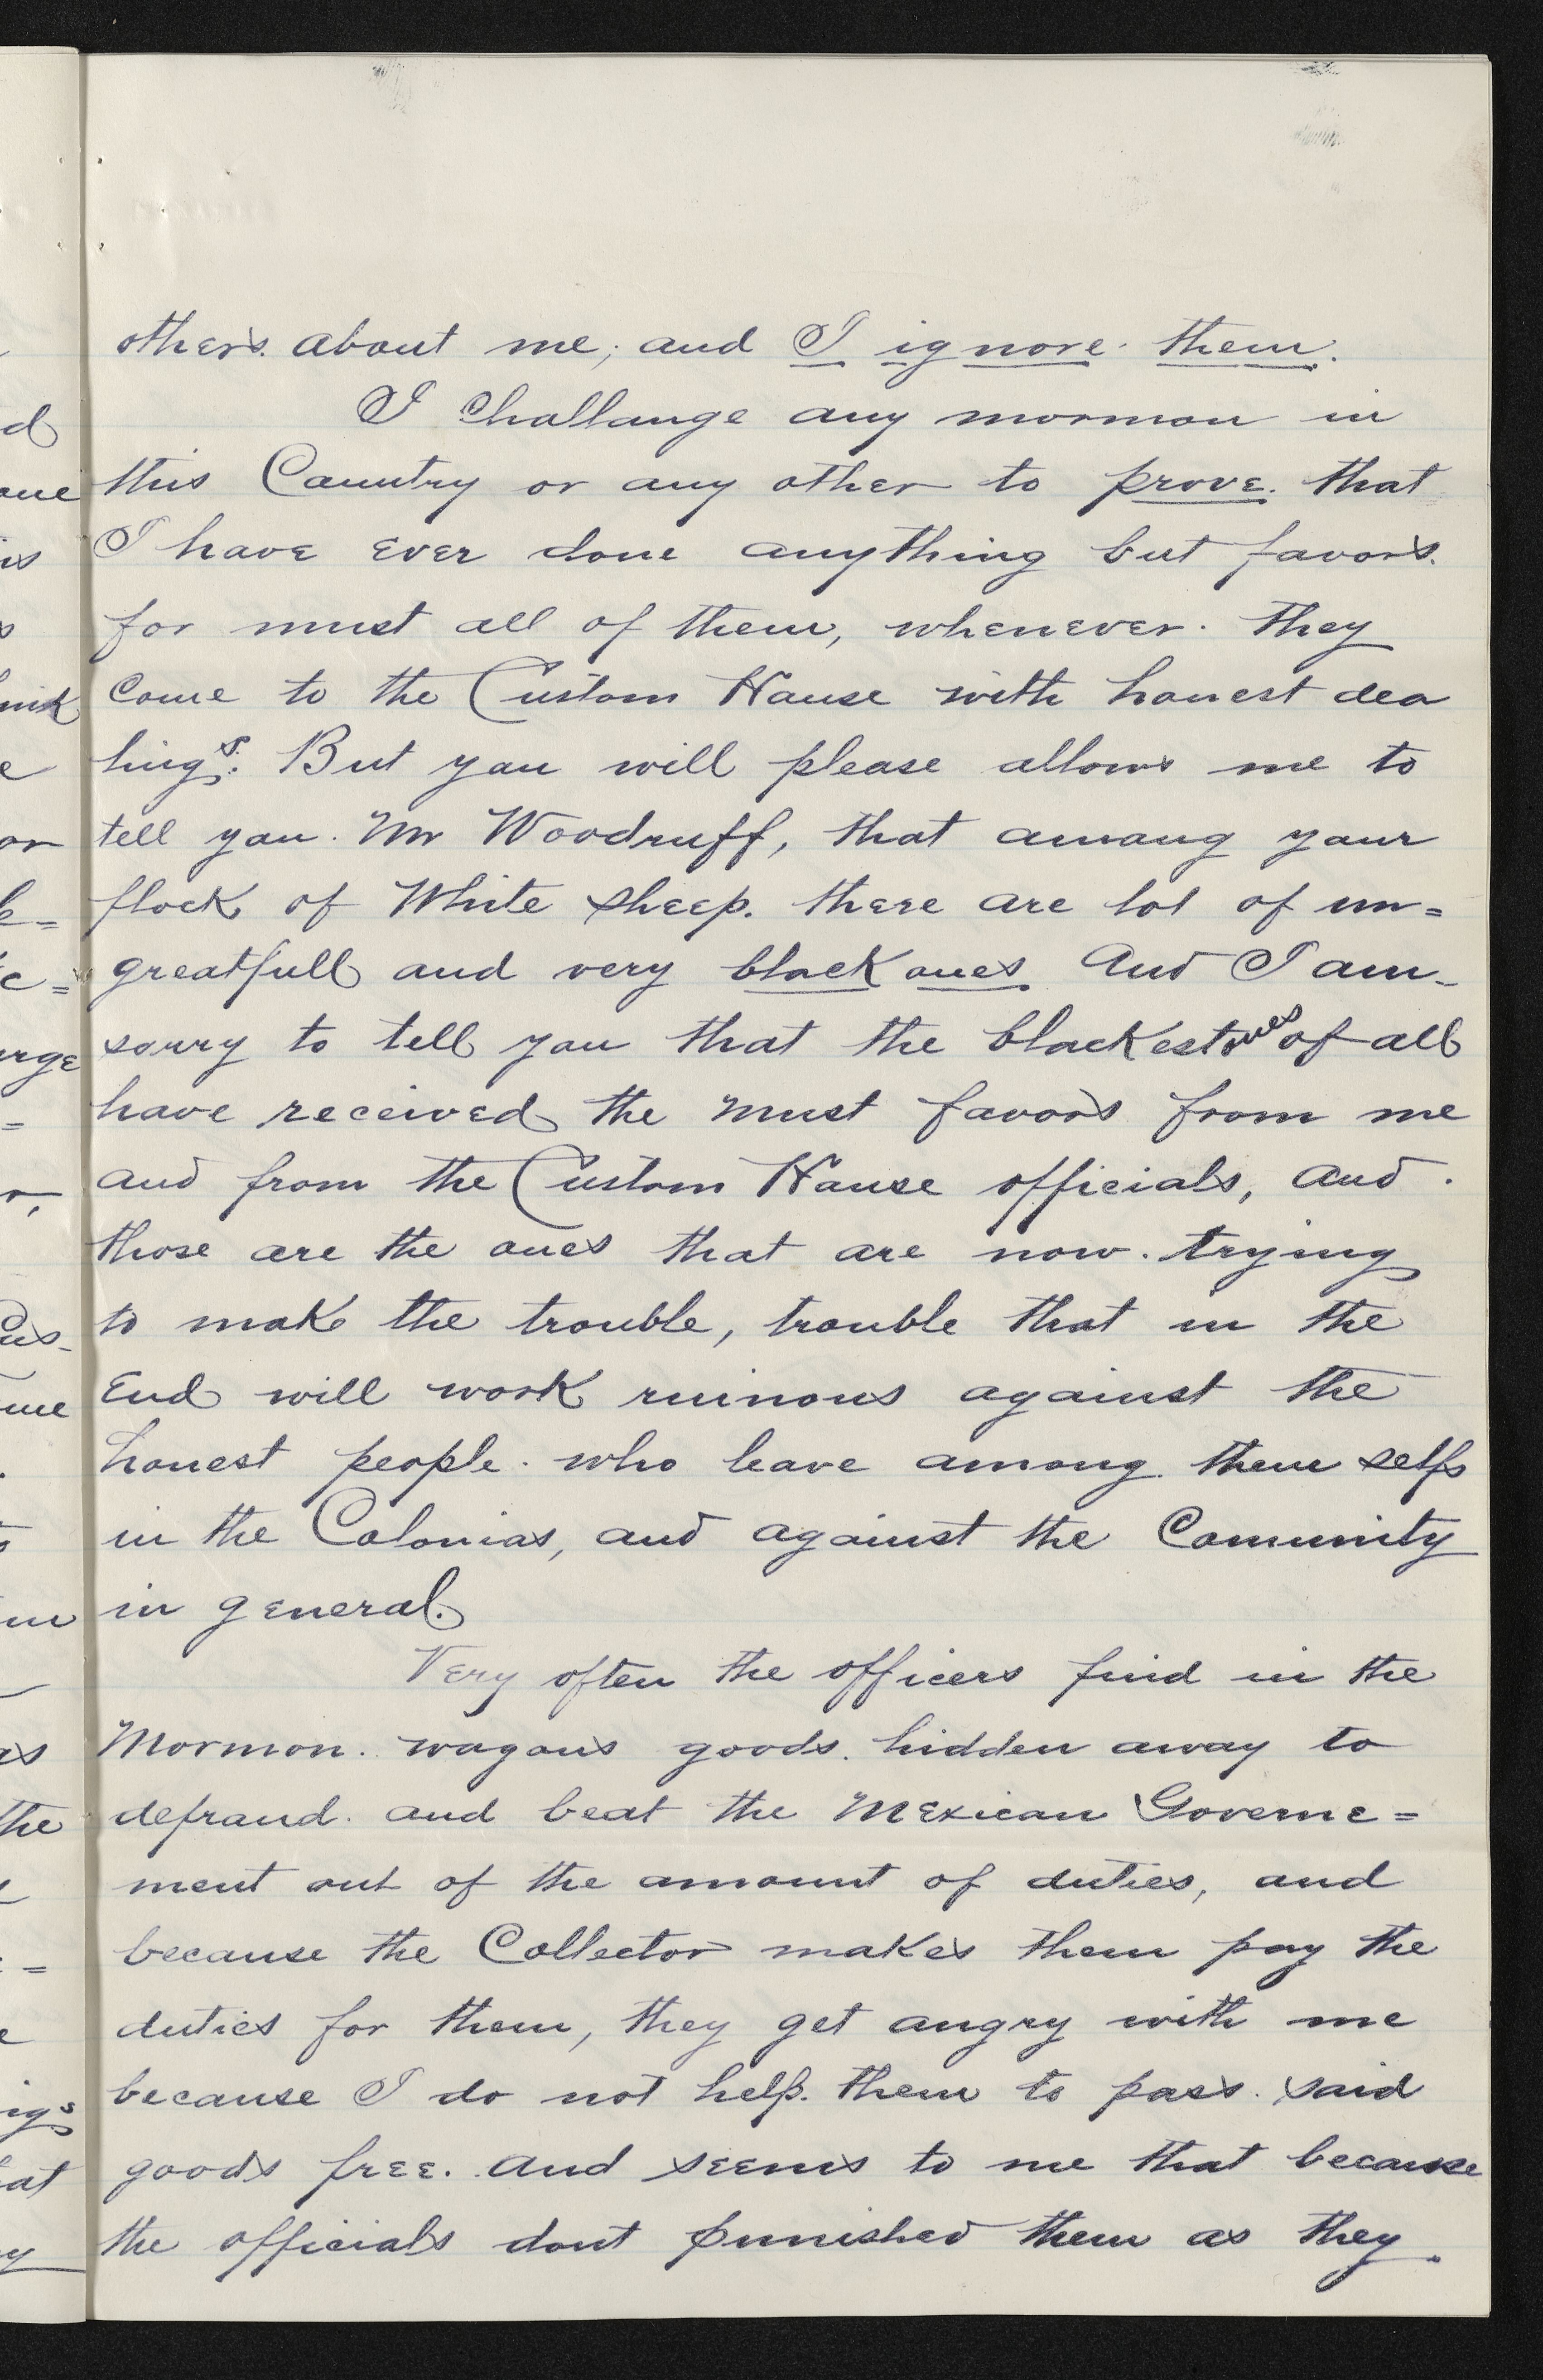 others. about me; and I ignore them.
I Challange any mormon in
this Country or any other to prove. that
I have ever done anything but favors.
for must all of them, whenever. they
Come to the Custom House with honest dea
lings. But you will please allows me to
tell you. Mr Woodruff, that among your
flock of White sheep. there are lot of un=
greatfull and very black ones. And I am
sorry to tell you that the blackest ones of all
have received the must favors from me
and from the Custom House officials, and.
those are the ones that are now. trying
to make the trouble, trouble that in the
End will work ruinous against the
honest people. who leave among. them selfs
in the Colonias, and against the Comunity
in general.
Very often the officers find in the
Mormon. wagons goods. hidden away to
defraud. and beat the Mexican Governe=
ment out of the amount of duties, and
because the Collector makes them pay the
duties for them, they get angry with me
because I do not help. them to pass. said
goods free. And seems to me that because
the officials dont punished them as they.